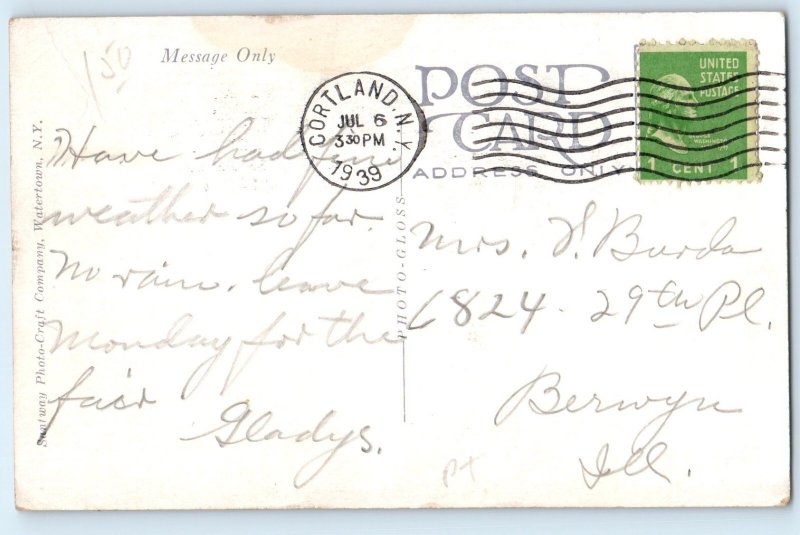 150
Message Only
POST CARD
ADDRESS ONLY
CORTLAND, N.Y.
JUL 6
3 30 PM
1939
UNITED
STATES
POSTAGE
GEORGE
WASHINGTON
1 CENT 1
Have had fine
weather so far.
No rain. leave
Monday for the
fair
Gladys.
Mrs. V. Burda
6824 - 29th Pl.
Berwyn
Ill.
pt
PHOTO-GLOSS
Santway Photo-Craft Company, Watertown, N.Y.